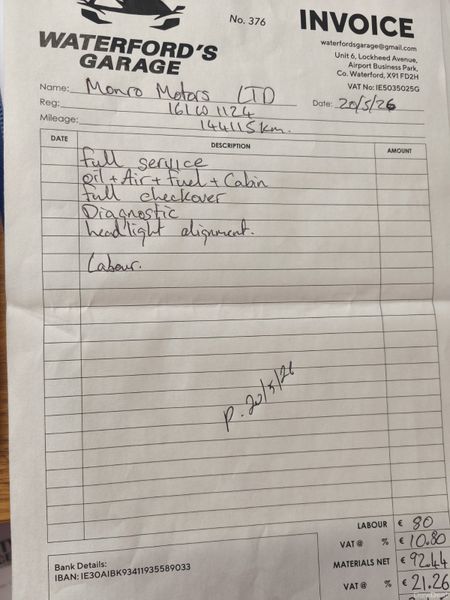 No. 376
INVOICE
WATERFORD'S
GARAGE
waterfordsgarage@gmail.com
Unit 6, Lockheed Avenue,
Airport Business Park,
Co. Waterford, X91 FD2H
VAT No: IE5035025G
Name: Monro Motors LTD
Reg: 161W1124
Date: 20/5/26
Mileage: 144115km.
DATE DESCRIPTION AMOUNT
full service
oil + Air + fuel + Cabin
full checkover
Diagnostic
headlight alignment.
Labour.
P. 20/5/26
LABOUR € 80
VAT @ % € 10.80
MATERIALS NET € 92.44
VAT @ % € 21.26
Bank Details:
IBAN: IE30AIBK93411935589033